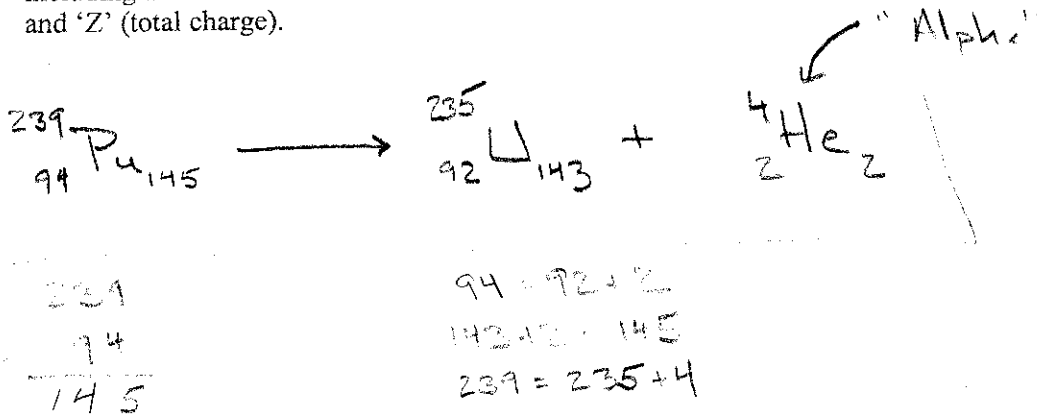 and ‘Z’ (total charge).
"Alpha"
239 94 Pu 145 → 235 92 U 143 + 4 2 He 2
239
94
145
94 = 92 + 2
143 + 2 = 145
239 = 235 + 4